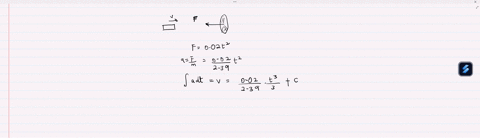 v F
F = 0.02t²
a = F/m = 0.02/2.39 t²
∫ a dt = v = 0.02/2.39 t³/3 + c